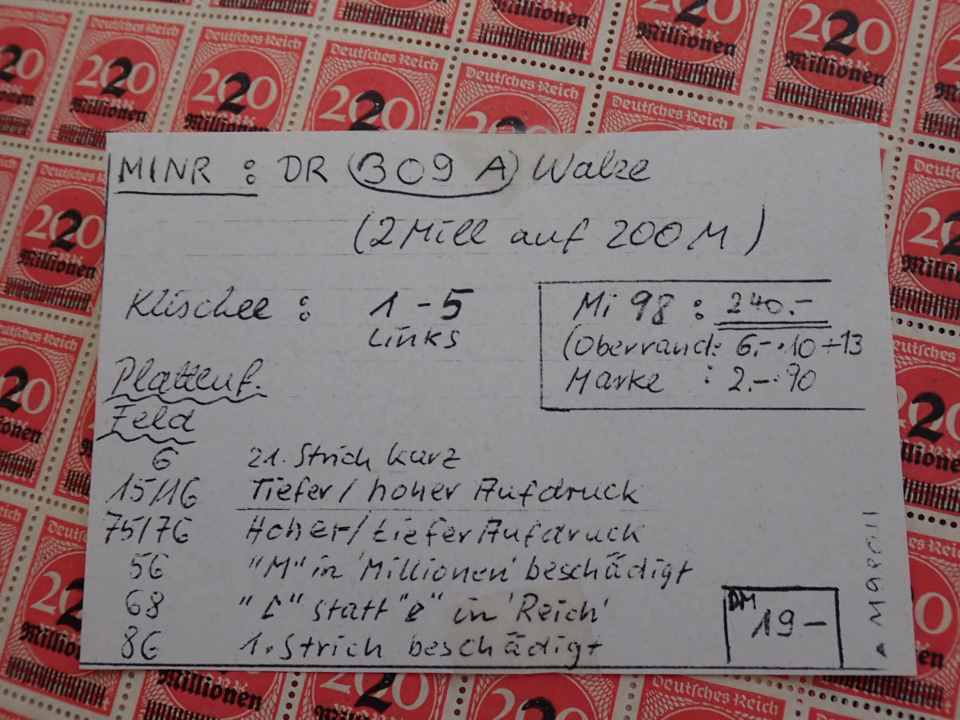 MINR : DR 309 A Walze
(2 Mill auf 200 M)
Klischee : 1-5
Links
Mi 98 : 240.-
(Oberrand: 6,-·10+13
Marke : 2.-·90
Plattenf.
Feld
6 21. Strich kurz
15/16 Tiefer/hoher Aufdruck
75/76 Hoher/tiefer Aufdruck
56 "M" in 'Millionen' beschädigt
68 "c" statt "e" in 'Reich'
86 1. Strich beschädigt
DM 19-
Deutsches Reich
200
2
Millionen